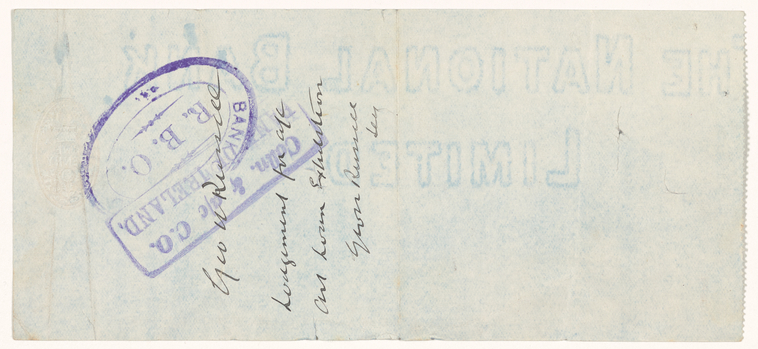 THE NATIONAL BANK
LIMITED
BANK
R. B. O.
Coln. & a/c C.O.
BANK OF IRELAND.
Geo W Russell
Lodgement for a/c
Art Loan Exhibition
Geo W Russell
Sec